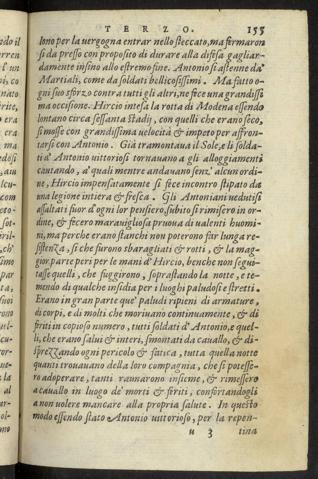 TERZO. 155
lono per la uergogna entrar nello steccato, ma fermaron
si da presso con proposito di durare alla difesa gagliar-
damente insino allo estremo fine. Antonio si astenne da'
Martiali, come da soldati bellicosissimi. Ma fatto o-
gni suo sforzo contra tutti gli altri, ne fece una grandissi
ma occisione. Hircio intesa la rotta di Modena essendo
lontano circa sessanta stadij, con quelli che erano seco,
si mosse con grandissima uelocità & impeto per affron-
tarsi con Antonio. Già tramontaua il Sole, e li solda-
ti d'Antonio uittoriosi tornauano a gli alloggiamenti
cantando, a' quali mentre andauano senz'alcun ordi-
ne, Hircio impensatamente si fece incontro stipato da
una legione intiera & fresca. Gli Antoniani uedutisi
assaltati fuor d'ogni lor pensiero, subito si rimisero in or-
dine, & fecero marauigliosa pruoua di ualenti huomi
ni, ma perche erano stanchi non poterono far lunga re-
sistenza, si che furono sbaragliati & rotti, & la mag-
gior parte perì per le mani d'Hircio, benche non segui-
tasse quelli, che fuggirono, soprastando la notte, e te-
mendo di qualche insidia per i luoghi paludosi e stretti.
Erano in gran parte que' paludi ripieni di armature,
di corpi, e di molti che moriuano continuamente, & di
feriti in copioso numero, tutti soldati d'Antonio, e quel-
li, che erano salui & interi, smontati da cauallo, & di-
sprezzando ogni pericolo & fatica, tutta quella notte
quanti trouauano della loro compagnia, che si potesse-
ro adoperare, tanti raunarono insieme, & rimessero
a cauallo in luogo de' morti & feriti, confortandogli
a non uolere mancare alla propria salute. In questo
modo essendo stato Antonio uittorioso, per la repen-
u 3 tina